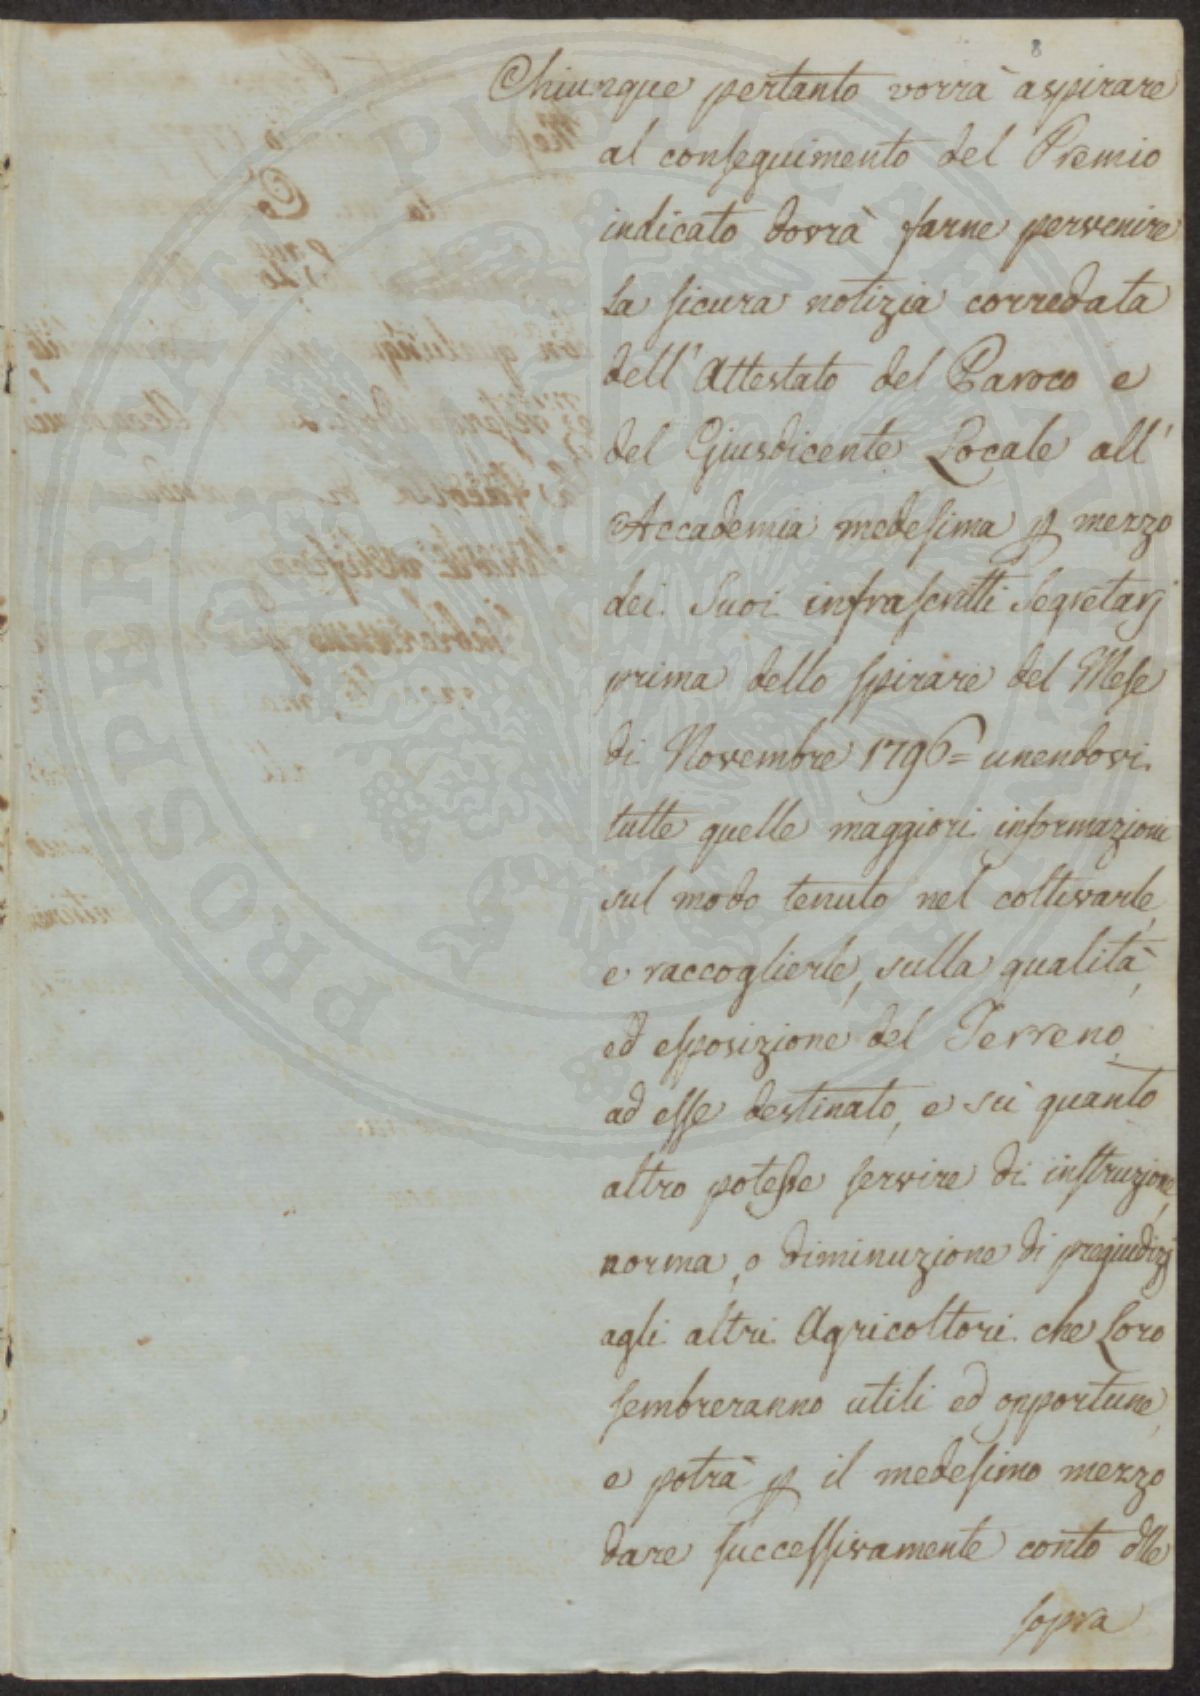 8
Chiunque pertanto vorrà aspirare
al conseguimento del Premio
indicato dovrà farne pervenire
la sicura notizia corredata
dell' Attestato del Paroco e
del Giusdicente Locale all'
Accademia medesima p mezzo
dei Suoi infrascritti Segretarj
prima dello spirare del Mese
di Novembre 1796= unendovi
tutte quelle maggiori informazioni
sul modo tenuto nel coltivarle,
e raccoglierle, sulla qualità,
ed esposizione del Terreno
ad esse destinato, e sù quanto
altro potesse servire di instruzione,
norma, o diminuzione di pregiudizj
agli altri Agricoltori che Loro
sembreranno utili ed opportune,
e potrà p il medesimo mezzo
dare successivamente conto dlle
sopra
PROSPERITATI PUBLICAE